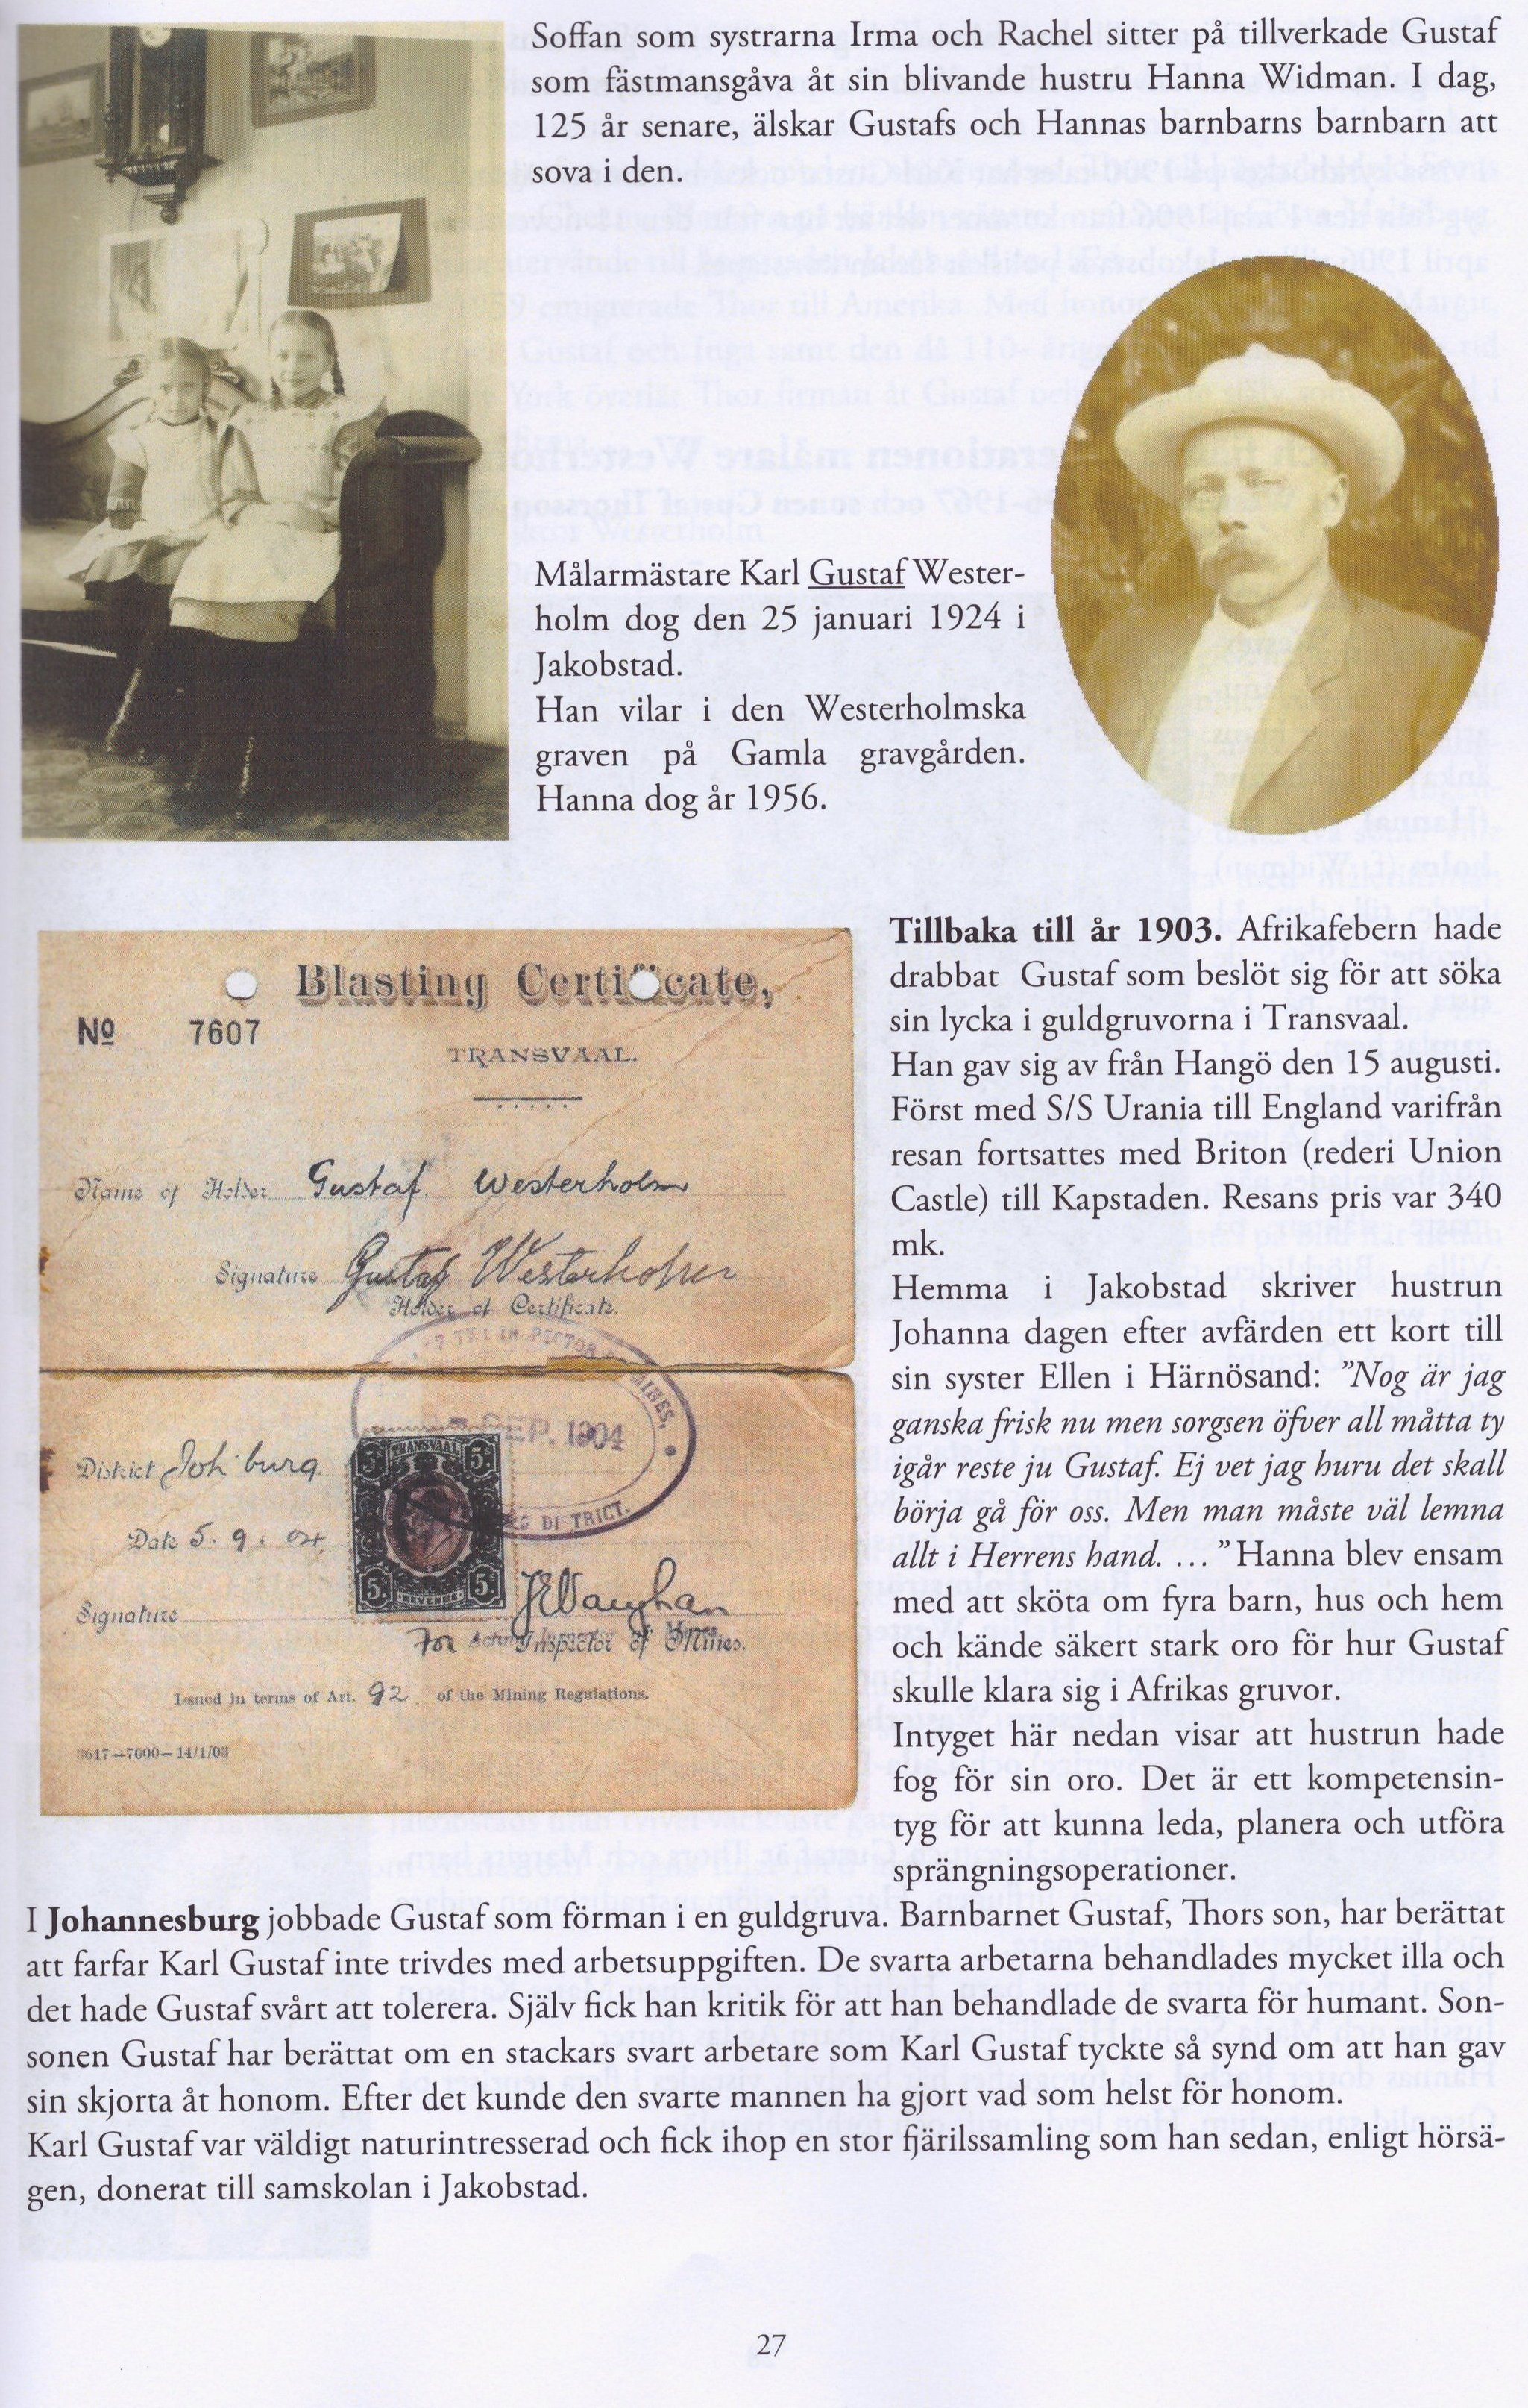 Soffan som systrarna Irma och Rachel sitter på tillverkade Gustaf
som fästmansgåva åt sin blivande hustru Hanna Widman. I dag,
125 år senare, älskar Gustafs och Hannas barnbarns barnbarn att
sova i den.
Målarmästare Karl Gustaf Wester-
holm dog den 25 januari 1924 i
Jakobstad.
Han vilar i den Westerholmska
graven på Gamla gravgården.
Hanna dog år 1956.
Blasting Certificate,
No 7607
TRANSVAAL.
Name of Holder Gustaf Westerholm
Signature Gustaf Westerholm
Holder of Certificate.
SEP. 1904
MINES,
DISTRICT.
District Joh'burg
TRANSVAAL
5/ 5/
5/ 5/
REVENUE
Date 5. 9. 04
Signature
For Acting Inspector of Mines.
Issued in terms of Art. 92 of the Mining Regulations.
3617—7000—14/1/03
Tillbaka till år 1903. Afrikafebern hade
drabbat Gustaf som beslöt sig för att söka
sin lycka i guldgruvorna i Transvaal.
Han gav sig av från Hangö den 15 augusti.
Först med S/S Urania till England varifrån
resan fortsattes med Briton (rederi Union
Castle) till Kapstaden. Resans pris var 340
mk.
Hemma i Jakobstad skriver hustrun
Johanna dagen efter avfärden ett kort till
sin syster Ellen i Härnösand: ”Nog är jag
ganska frisk nu men sorgsen öfver all måtta ty
igår reste ju Gustaf. Ej vet jag huru det skall
börja gå för oss. Men man måste väl lemna
allt i Herrens hand. … ” Hanna blev ensam
med att sköta om fyra barn, hus och hem
och kände säkert stark oro för hur Gustaf
skulle klara sig i Afrikas gruvor.
Intyget här nedan visar att hustrun hade
fog för sin oro. Det är ett kompetensin-
tyg för att kunna leda, planera och utföra
sprängningsoperationer.
I Johannesburg jobbade Gustaf som förman i en guldgruva. Barnbarnet Gustaf, Thors son, har berättat
att farfar Karl Gustaf inte trivdes med arbetsuppgiften. De svarta arbetarna behandlades mycket illa och
det hade Gustaf svårt att tolerera. Själv fick han kritik för att han behandlade de svarta för humant. Son-
sonen Gustaf har berättat om en stackars svart arbetare som Karl Gustaf tyckte så synd om att han gav
sin skjorta åt honom. Efter det kunde den svarte mannen ha gjort vad som helst för honom.
Karl Gustaf var väldigt naturintresserad och fick ihop en stor fjärilssamling som han sedan, enligt hörsä-
gen, donerat till samskolan i Jakobstad.
27